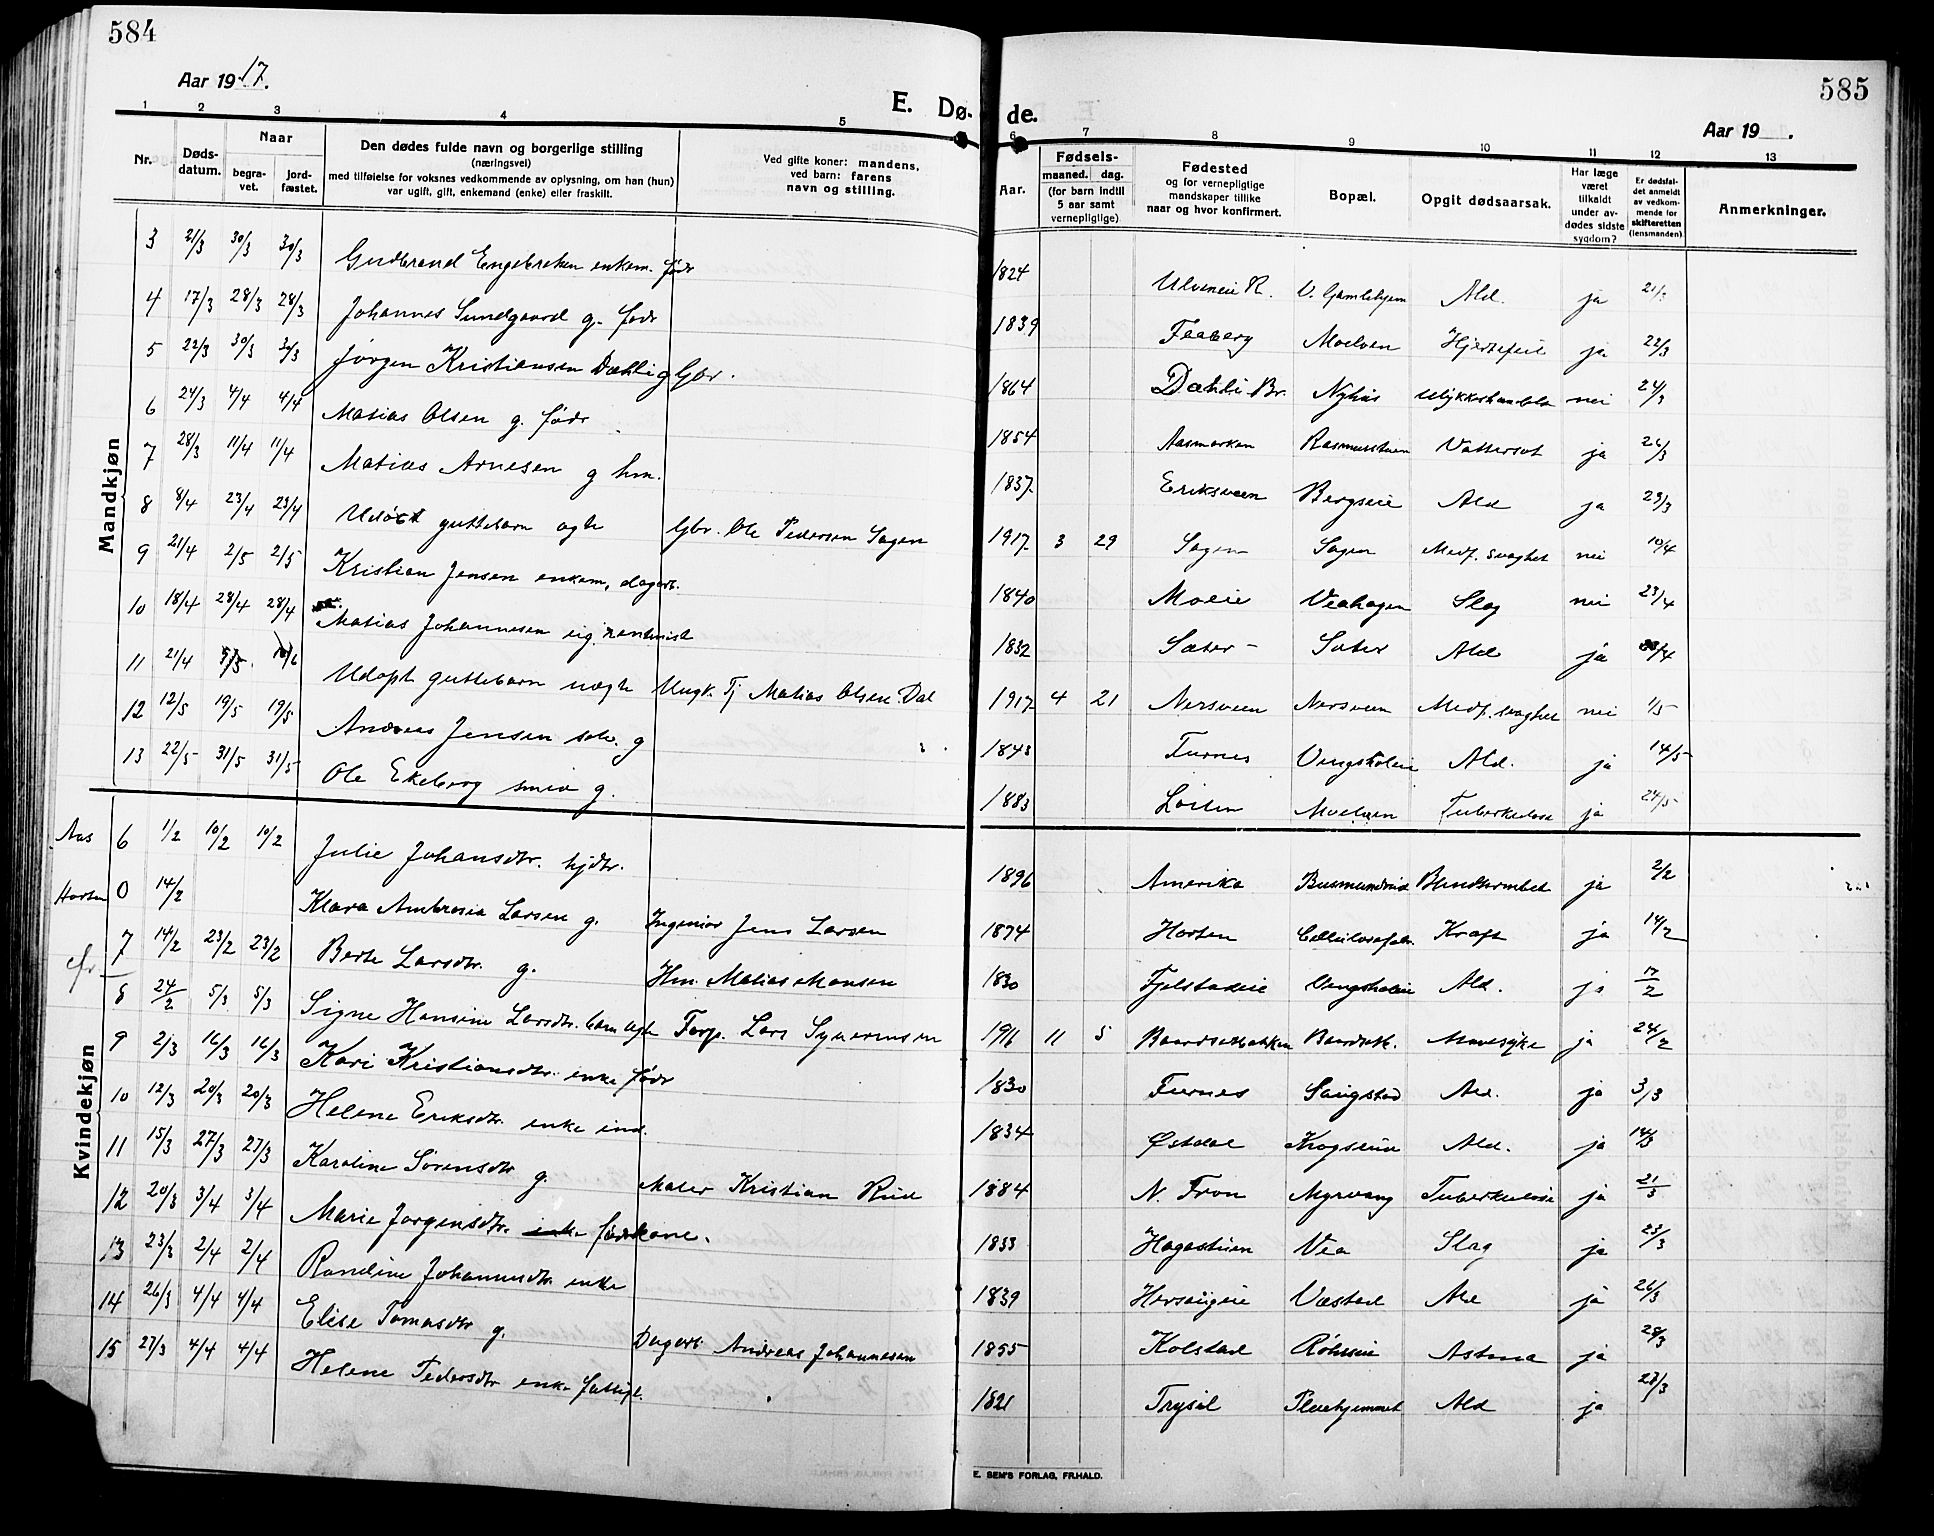 584
585
Aar 1917.
E. Dø- de.
Aar 19 .
1 2 3 4 5 6 7 8 9 10 11 12 13
Nr.
Døds-datum.
Naar
begra-vet.
jord-fæstet.
Den dødes fulde navn og borgerlige stilling
(næringsvei)
med tilføielse for voksnes vedkommende av oplysning, om han (hun)
var ugift, gift, enkemand (enke) eller fraskilt.
Ved gifte koner: mandens,
ved barn: farens
navn og stilling.
Aar.
Fødsels-
maaned. dag.
(for barn indtil
5 aar samt
vernepligtige)
Fødested
og for vernepligtige
mandskaper tillike
naar og hvor konfirmert.
Bopæl.
Opgit dødsaarsak.
Har læge
været
tilkaldt
under av-
dødes sidste
sygdom?
Er dødsfal-
det anmeldt
av vedkom-
mende for
skifteretten
(lensmanden)
Anmerkninger.
Mandkjøn
3 21/3 30/3 30/3 Gudbrand Engebretsen enkem. fødr 1824 Ulveneie R. V. Gamlehjem Ald. ja 21/3
4 17/3 28/3 28/3 Johannes Sundgaard g. fødr 1839 Faaberg Moelven Hjertefeil ja 22/3
5 22/3 30/3 30/3 Jørgen Kristiansen Dæhli g Gbr. 1864 Dæhli Br. Nyhus nei 24/3
6 24/3 4/4 4/4 Matias Olsen g. fødr 1854 Aasmarken Rasmusstuen Vattersot ja 26/3
7 28/3 11/4 11/4 Matias Arnesen g hm. 1837 Eriksveen Bergseie Ald ja 29/3
8 8/4 23/4 23/4 Udøpt guttebarn ægte Gbr. Ole Pedersen Sagen 1917 3 29 Sagen Sagen Medf. svaghet nei 10/4
9 21/4 2/5 2/5 Kristian Jensen enkem, dagarb. 1840 Moeie Veahagen Slag nei 23/4
10 18/4 28/4 28/4 Matias Johannesen ug. rentenist 1832 Sæter Sæter Ald ja
11 21/4 10/6 Udøpt guttebarn uægte Ungk. Tj Matias Olsen Dal 1917 4 21 Nersveen Nersveen Medf. svaghet nei 1/5
12 12/5 19/5 19/5 Andreas Jensen selv. g 1843 Furnes Vengsholeie Ald. ja 14/5
13 22/5 31/5 31/5 Ole Ekeberg smed g. 1883 Løiten Moelven Tuberkulose ja 24/5
Kvindekjøn
Aas 6 1/2 10/2 10/2 Julie Johansdtr. hjdtr. 1896 Amerika Busmundrud Blindtarmbet ja 2/2
Horten 0 14/2 Klara Ambrosia Larsen g. Ingeniør Jens Larsen 1874 Horten Cellulosefabr. Kræft ja 14/2
7 14/2 23/2 23/2 Berte Larsdtr. g. Hm. Matias Monsen 1830 Fjelstadeie Vengsholeie Ald. ja 17/2
8 24/2 5/3 5/3 Signe Hansine Larsdtr. barn ægte Forp. Lars Syversen 1916 11 5 Baardsetbakken Baardset. Mavesyke ja 24/2
9 2/3 16/3 16/3 Kari Kristiansdtr. enke fødr 1830 Furnes Saugstad Ald. ja 3/3
10 12/3 20/3 20/3 Helene Eriksdtr. enke ind. 1834 Østdal Krogseie Ald. ja 14/3
11 15/3 27/3 27/3 Karoline Sørensdtr g. Maler Kristian Rud 1884 N. Fron Myrvang Tuberkulose ja 21/3
12 20/3 3/4 3/4 Marie Jørgensdtr. enke fødrkone. 1833 Hagastuen Vea Slag ja 23/3
13 23/3 2/4 2/4 Randine Johannesdtr enke 1839 Horsaugeie Væstad Ald ja 26/3
14 26/3 4/4 4/4 Elise Tomasdtr g. Dagarb. Andreas Johannesen 1855 Kolstad Røhneeie Astma ja 28/3
15 27/3 4/4 4/4 Helene Pedersdtr enke fattigl. 1821 Trysil Pleiehjemmet Ald ja 28/3
E. SEM'S FORLAG, FR.HALD.